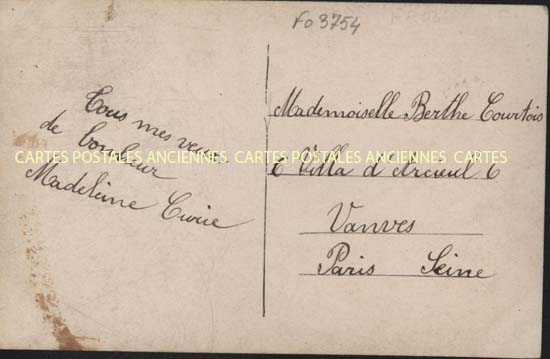 Fo 3754
Tous mes vœux
de bonheur
Madeleine
Mademoiselle Berthe Courtois
6 Villa d'Arcueil 6
Vanves
Paris Seine
CARTES POSTALES ANCIENNES CARTES POSTALES ANCIENNES CARTES